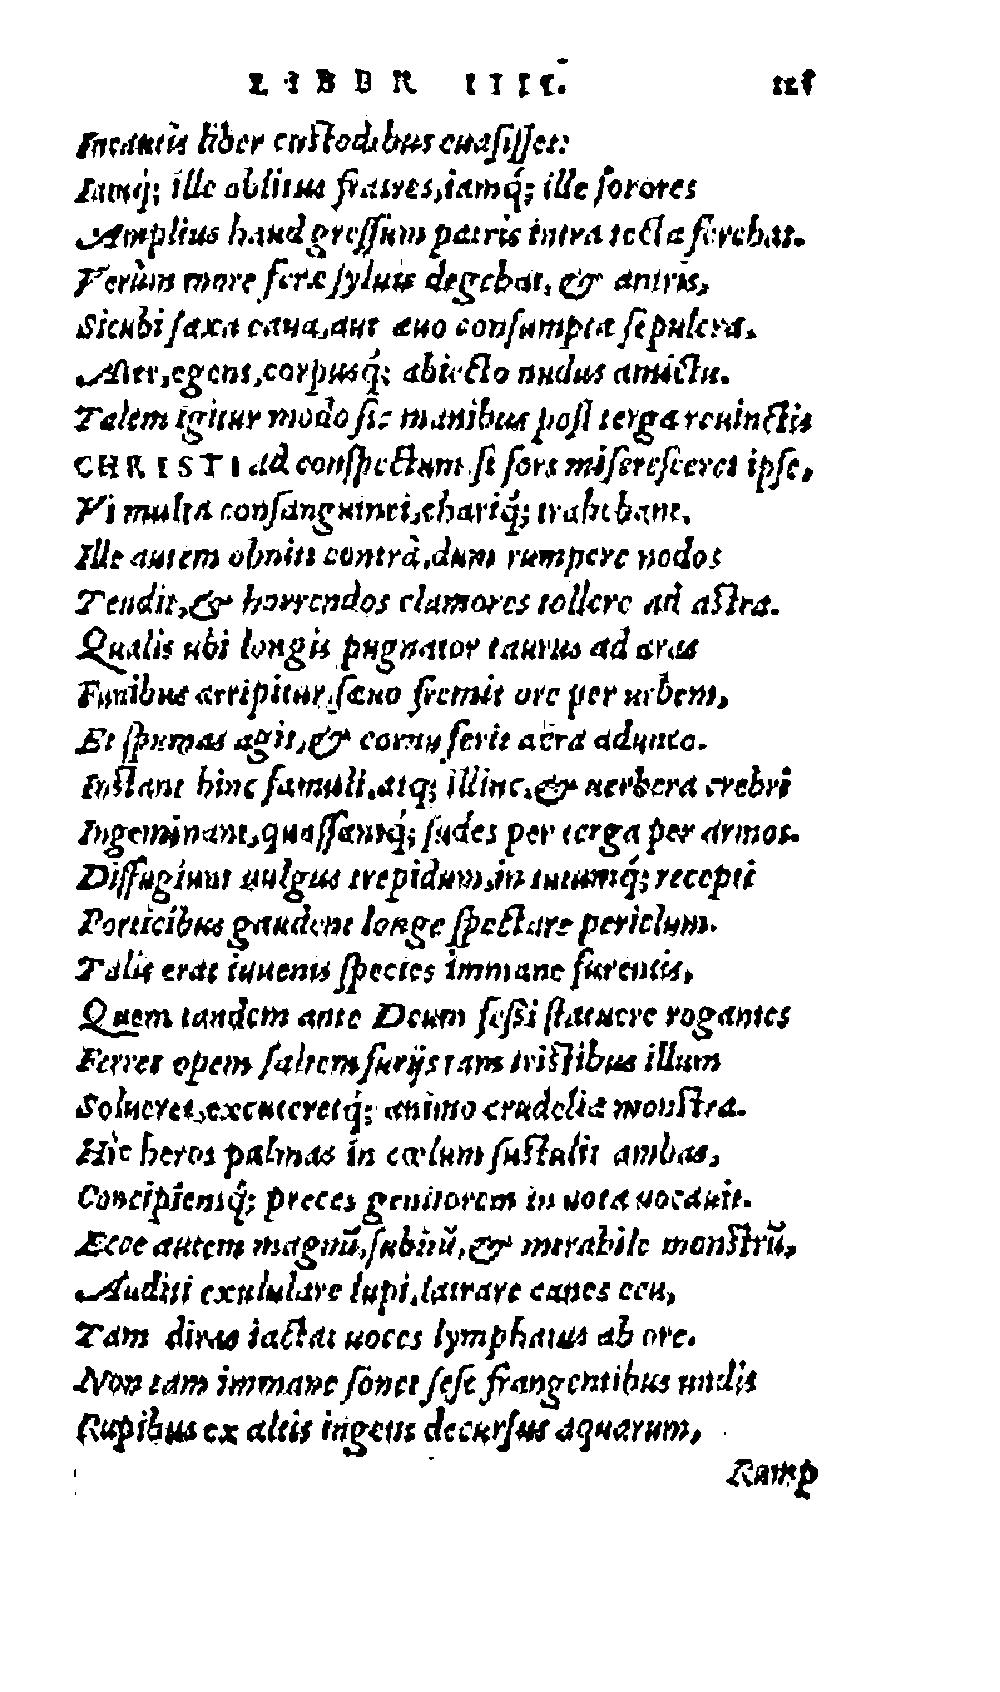 LIBER IIII.
Incautis liber custodibus euasisset:
Iamq́; ille oblitus fratres, iamq́; ille sorores
Amplius haud gressum patris intra tecta ferebat.
Verùm more feræ syluis degebat, & antris,
Sicubi saxa caua, aut æuo consumpta sepulcra.
Ater, egens, corpusq́; abiecto nudus amictu.
Talem igitur modo sic manibus post terga reuinctis
CHRISTI ad conspectum si fors miseresceret ipse,
Vi multa consanguinei, chariq́; trahebant.
Ille autem obniti contrà, dum rumpere nodos
Tendit, & horrendos clamores tollere ad astra.
Qualis ubi longis pugnator taurus ad aras
Funibus arripitur, sæuo fremit ore per urbem,
Et spumas agit, & cornu ferit aëra adunco.
Instant hinc famuli, atq; illinc, & uerbera crebri
Ingeminant, quassantq́; sudes per terga per armos.
Diffugiunt uulgus trepidum, in tutumq́; recepti
Porticibus gaudent longe spectare periclum.
Talis erat iuuenis species immane furentis,
Quem tandem ante Deum fessi statuere rogantes
Ferret opem saltem furijs tam tristibus illum
Solueret, excuteretq́; animo crudelia monstra.
Hîc heros palmas in cœlum sustulit ambas,
Concipiensq́; preces genitorem in uota uocauit.
Ecce autem magnũ, subitũ, & mirabile monstrũ,
Auditi exululare lupi, latrare canes ceu,
Tam diras iactat uoces lymphatus ab ore.
Non tam immane sonet sese frangentibus undis
Rupibus ex altis ingens decursus aquarum,